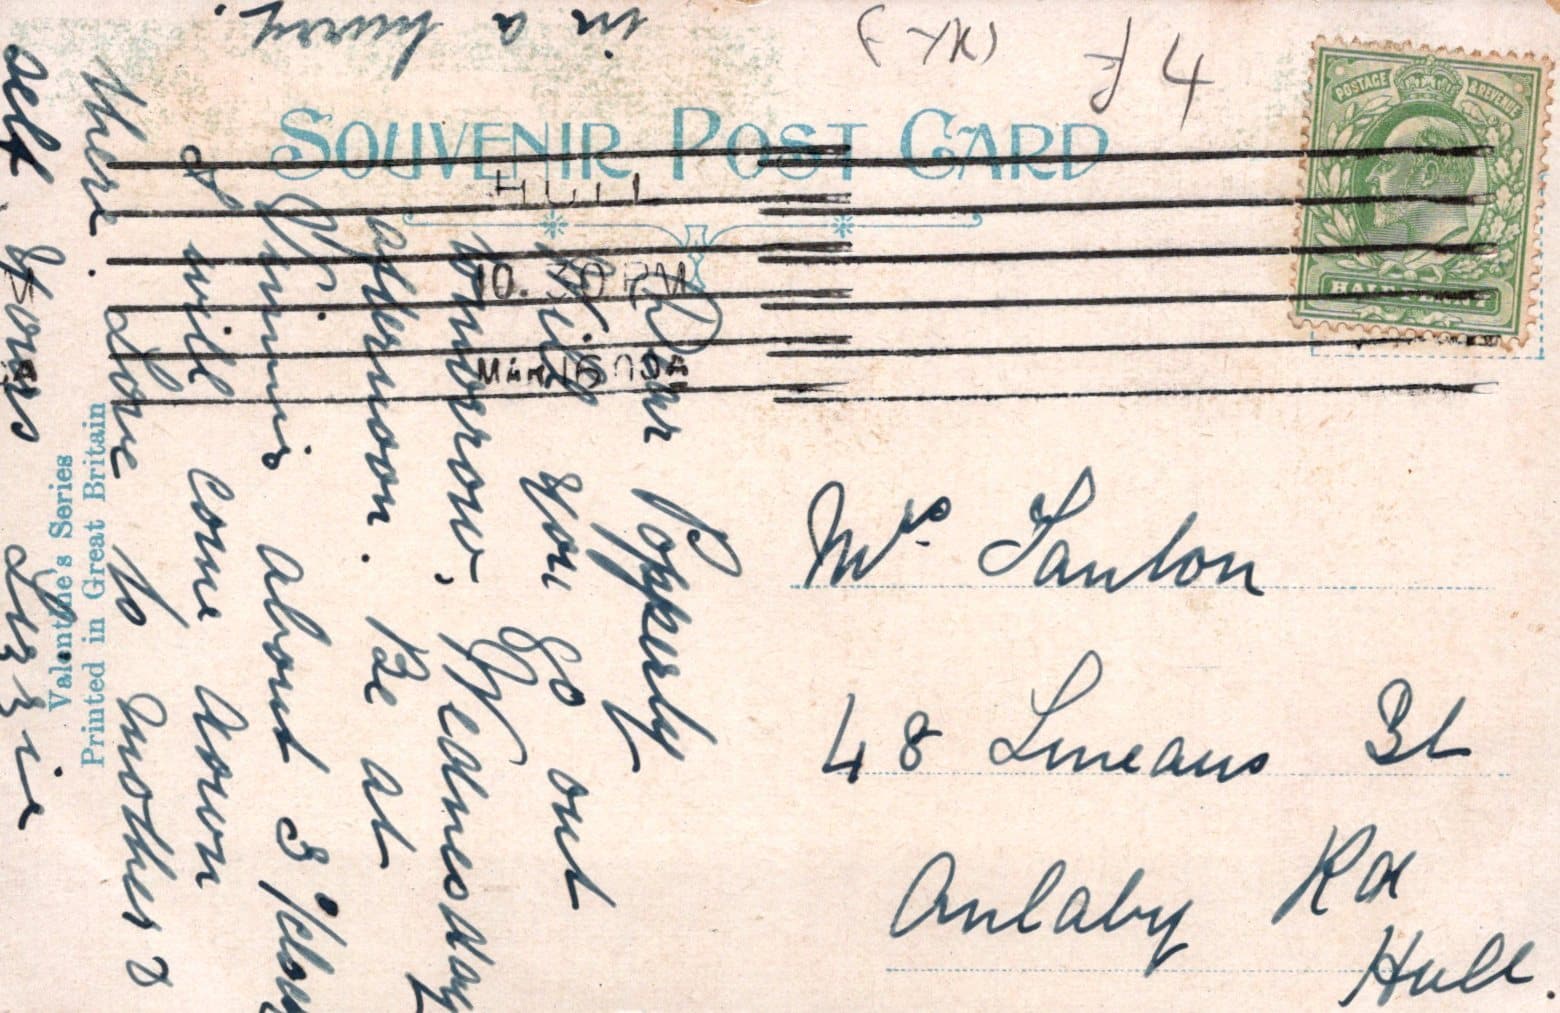 in a hurry.
SOUVENIR POST CARD
POSTAGE & REVENUE
HALFPENNY
HULL
10.30 PM
MAR 16 09
Dear Popperly
Will you go out
tomorrow, Wednesday
afternoon. Be at
about 3 o'clock
I will come down
there. Love to mother &
self. Yours Lizzie
Valentine's Series
Printed in Great Britain
Mrs
48 Lineaus St
Anlaby Rd
Hull.